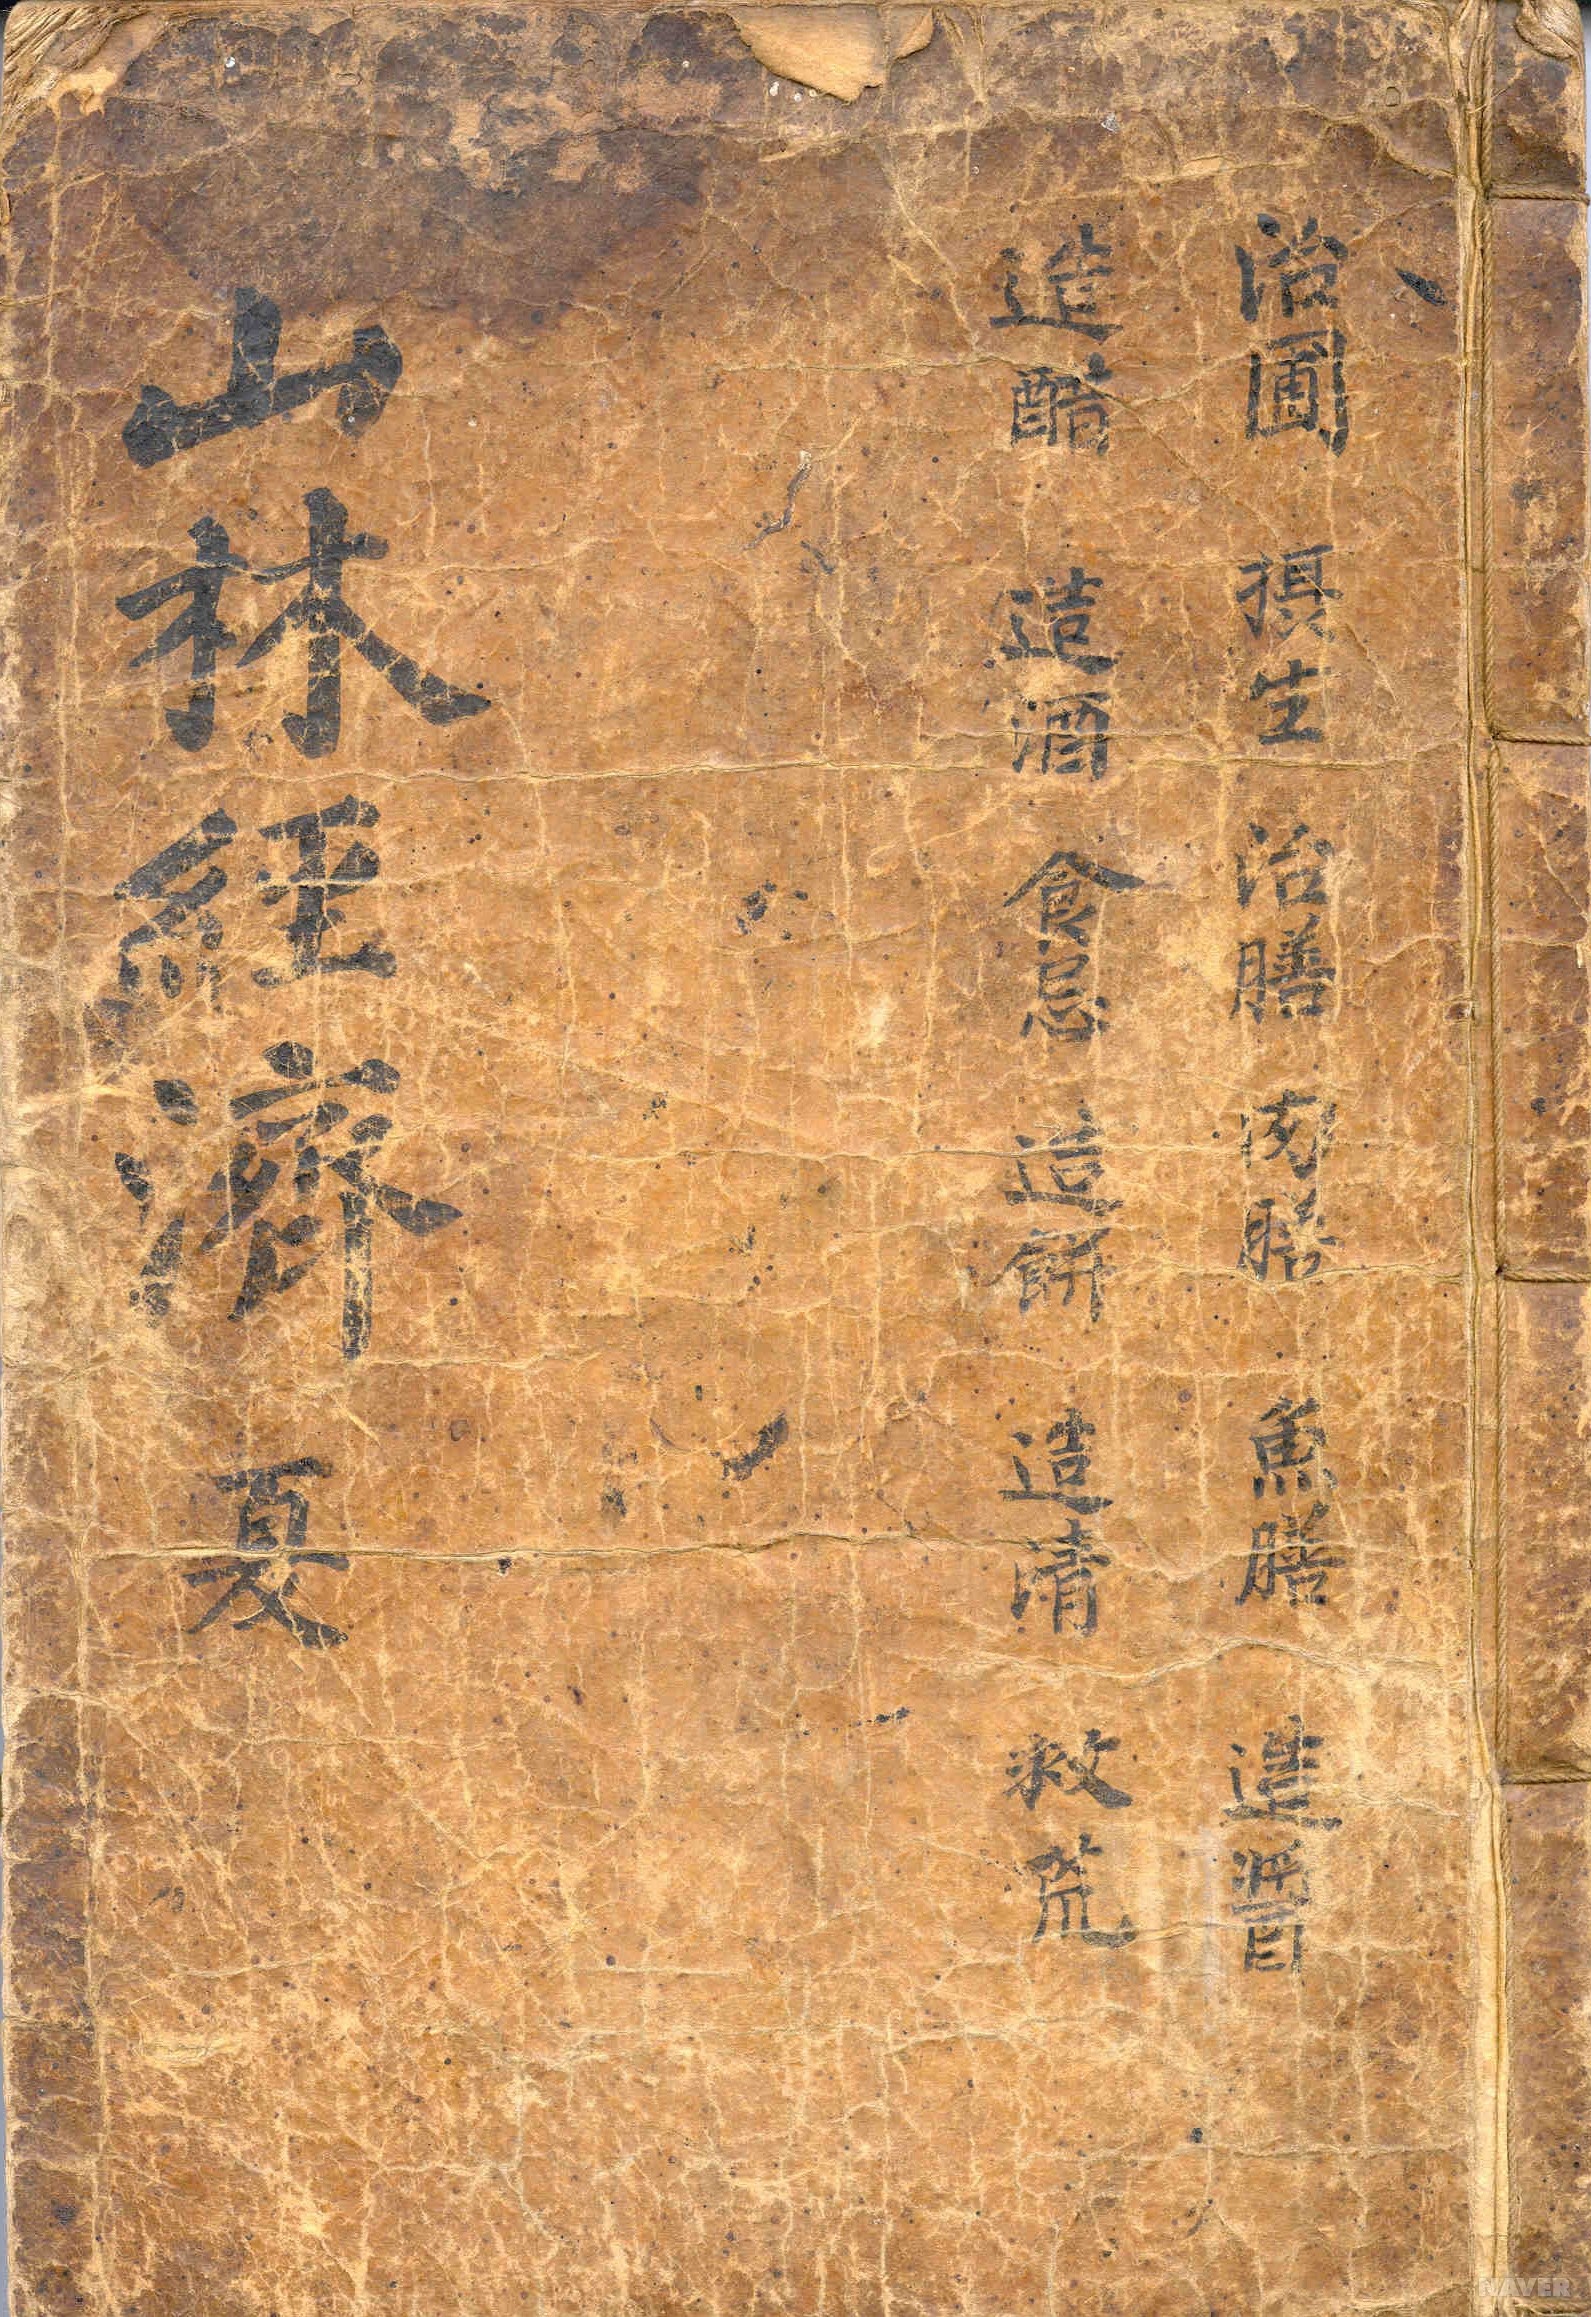 治圃 摂生 治膳 肉膳 魚膳 造醬
造醋 造酒 食忌 造餠 造清 救荒
山林經濟 夏
NAVER